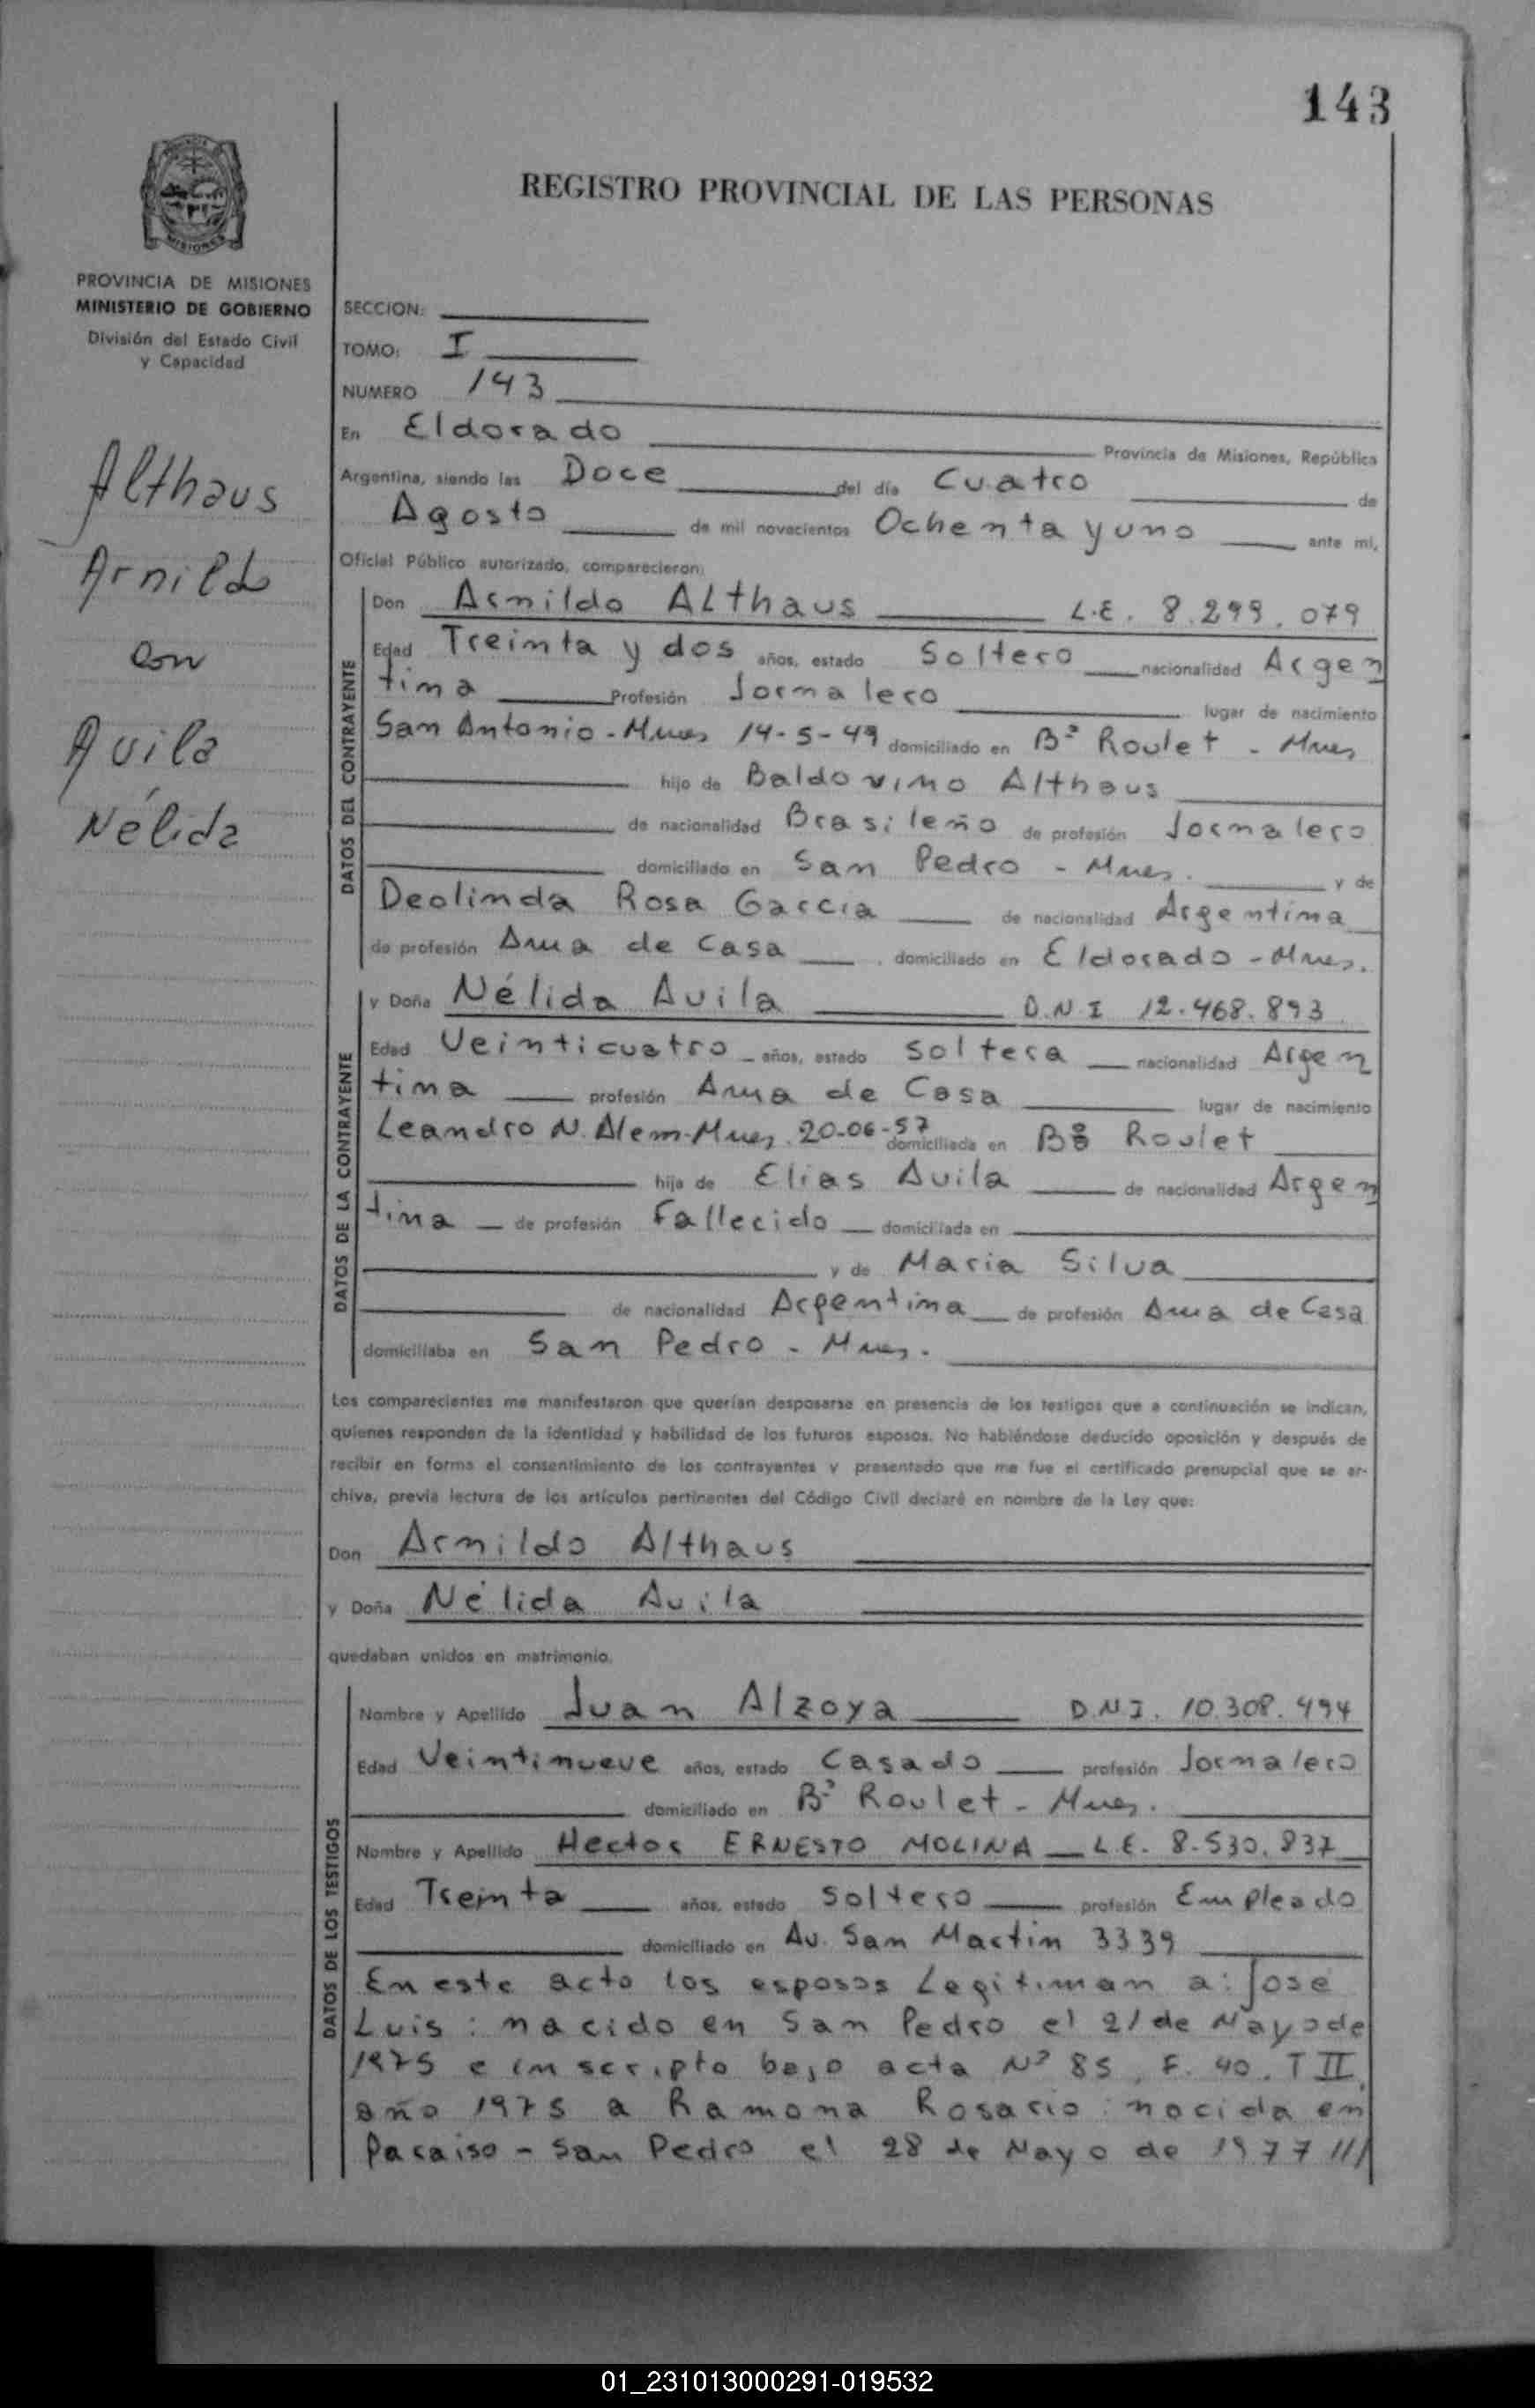 143
REGISTRO PROVINCIAL DE LAS PERSONAS
MISIONES
PROVINCIA DE MISIONES
MINISTERIO DE GOBIERNO
División del Estado Civil
y Capacidad
Althaus
Arnildo
con
Avila
Nélida
SECCION:
TOMO: I
NUMERO 143
En Eldorado Provincia de Misiones, República
Argentina, siendo las Doce del día Cuatro de
Agosto de mil novecientos Ochenta y uno ante mi,
Oficial Público autorizado, comparecieron:
DATOS DEL CONTRAYENTE
Don Arnildo ALthaus L.E. 8.299.079
Edad Treinta y dos años, estado Soltero nacionalidad Argen
tina Profesión Jornalero lugar de nacimiento
San Antonio - Mnes 14-5-49 domiciliado en Bº Roulet - Mnes
hijo de Baldovino Althaus
de nacionalidad Brasileño de profesión Jornalero
domiciliado en San Pedro - Mnes. y de
Deolinda Rosa Garcia de nacionalidad Argentina
de profesión Ama de Casa domiciliado en Eldorado - Mnes.
DATOS DE LA CONTRAYENTE
y Doña Nélida Avila D.N.I 12.468.893
Edad Veinticuatro años, estado Soltera nacionalidad Argen
tina profesión Ama de Casa lugar de nacimiento
Leandro N. Alem-Mnes 20-06-57 domiciliada en Bº Roulet
hija de Elias Avila de nacionalidad Argen
tina de profesión Fallecido domiciliada en
y de Maria Silva
de nacionalidad Argentina de profesión Ama de Casa
domiciliaba en San Pedro - Mnes.
Los comparecientes me manifestaron que querían desposarse en presencia de los testigos que a continuación se indican,
quienes responden de la identidad y habilidad de los futuros esposos. No habiéndose deducido oposición y después de
recibir en forma el consentimiento de los contrayentes y presentado que me fue el certificado prenupcial que se ar-
chiva, previa lectura de los artículos pertinentes del Código Civil declaré en nombre de la Ley que:
Don Arnildo Althaus
y Doña Nélida Avila
quedaban unidos en matrimonio.
DATOS DE LOS TESTIGOS
Nombre y Apellido Juan Alzoya D.N.I. 10.308.494
Edad Veintinueve años, estado Casado profesión Jornalero
domiciliado en Bº Roulet - Mnes.
Nombre y Apellido Hector ERNESTO MOLINA L.E. 8.530.837
Edad Treinta años, estado Soltero profesión Empleado
domiciliado en Av. San Martin 3339
En este acto los esposos Legitiman a: José
Luis: nacido en San Pedro el 21 de Mayo de
1975 e inscripto bajo acta Nº 85, F. 40. T II
año 1975 a Ramona Rosario: nacida en
Paraiso - San Pedro el 28 de Mayo de 1977 ///
01_231013000291-019532